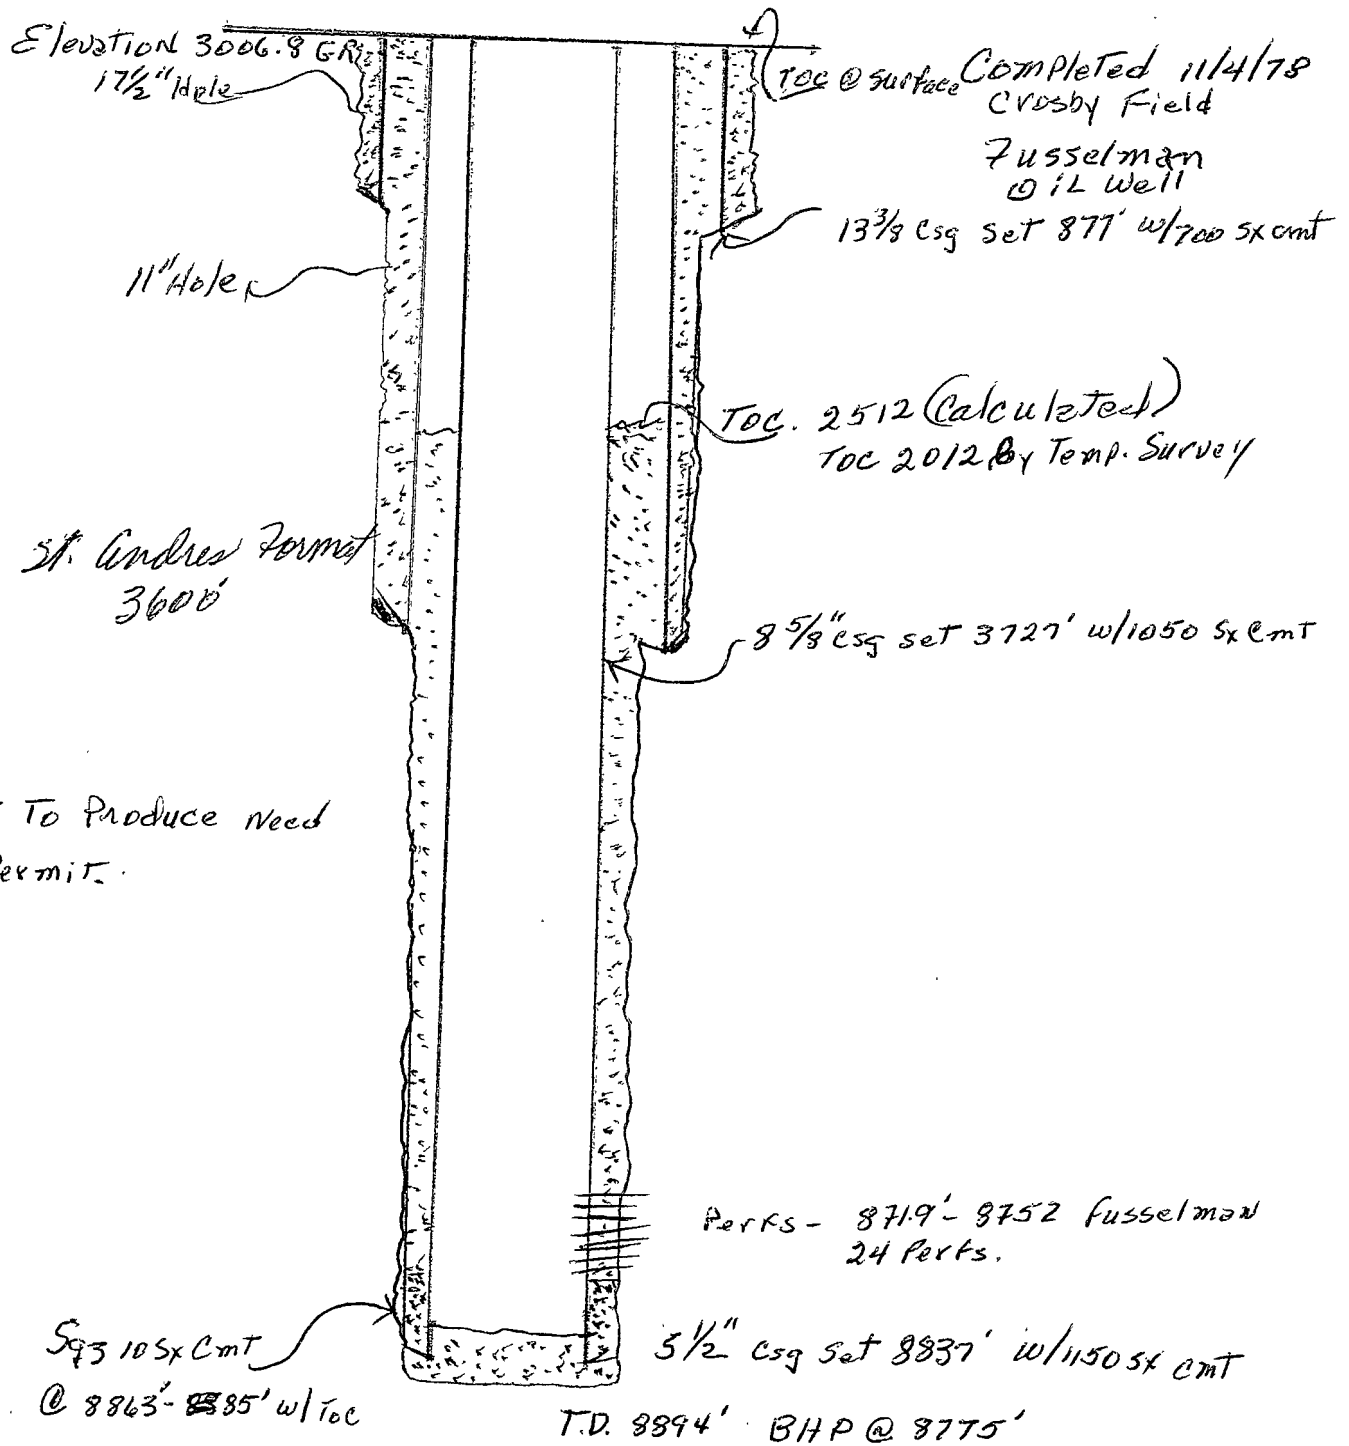 Elevation 3006.8 GR
17½" Hole
TOC @ surface
Completed 11/4/78
Crosby Field
Fusselman
OiL Well
13⅜ Csg set 877' w/700 sx cmt
11" Hole
TOC. 2512 (Calculated)
TOC 2012 By Temp. Survey
St. Andres Format
3600'
8 ⅝" csg set 3727' w/1050 Sx Cmt
To Produce Need
Permit.
Perfs - 8719' - 8752 fusselman
24 Perfs.
Sqz 10 Sx Cmt
@ 8863'- 85' w/ Toc
5½" csg set 8837' w/1150 sx cmt
T.D. 8894' BHP @ 8775'